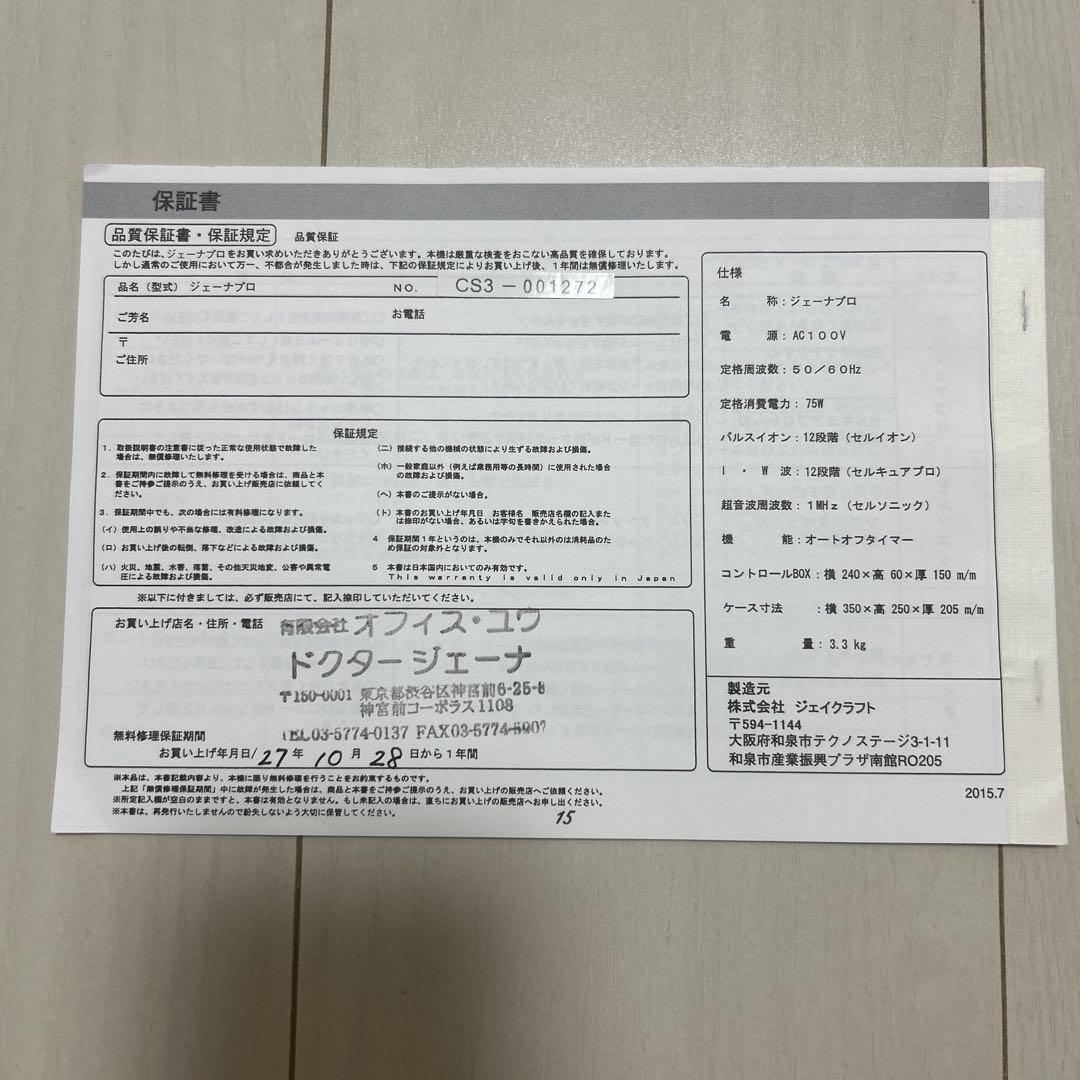 保証書
品質保証書・保証規定 品質保証
このたびは、ジェーナプロをお買い求めいただきありがとうございます。本機は厳重な検査をおこない高品質を確保しております。
しかし通常のご使用において万一、不都合が発生しました時は、下記の保証規定によりお買い上げ後、1年間は無償修理いたします。
品名(型式) ジェーナプロ NO. CS3-001272
ご芳名 お電話
〒
ご住所
保証規定
1. 取扱説明書の注意書に従った正常な使用状態で故障した
場合は、無償修理いたします。
2. 保証期間内に故障して無料修理を受ける場合は、商品と本
書をご持参ご提示のうえ、お買い上げ販売店に依頼してく
ださい。
3. 保証期間中でも、次の場合には有料修理になります。
(イ) 使用上の誤りや不当な修理、改造による故障および損傷。
(ロ) お買い上げ後の転倒、落下などによる故障および損傷。
(ハ) 火災、地震、水害、落雷、その他天災地変、公害や異常電
圧による故障および損傷。
(ニ) 接続する他の機械の状態により生ずる故障および損傷。
(ホ) 一般家庭以外(例えば業務用等の長時間)に使用された場合
の故障および損傷。
(ヘ) 本書のご提示がない場合。
(ト) 本書のお買い上げ年月日 お客様名 販売店名欄の記入また
は捺印がない場合、あるいは字句を書きかえられた場合。
4 保証期間1年というのは、本機のみでそれ以外のは消耗品のた
め保証の対象外となります。
5 本書は日本国内においてのみ有効です。
This warranty is valid only in Japan
※以下に付きましては、必ず販売店にて、記入捺印していただいてください。
お買い上げ店名・住所・電話 有限会社オフィス・ユウ
ドクタージェーナ
〒150-0001 東京都渋谷区神宮前6-25-8
神宮前コーポラス1108
TEL03-5774-0137 FAX03-5774-5907
無料修理保証期間
お買い上げ年月日/27年10月28日から1年間
※本品は、本書記載内容より、本機に限り無料修理を行うことをお約束するものです。
上記「無償修理保証期間」中に故障が発生した場合は、商品と本書をご持参ご提示のうえ、お買い上げの販売店へご依頼ください。
※所定記入欄が空白のままですと、本書は有効となりません。もし未記入の場合は、直ちにお買い上げの販売店へお申し出ください。
※本書は、再発行いたしませんので紛失しないよう大切に保管してください。
15
仕様
名 称:ジェーナプロ
電 源:AC100V
定格周波数:50/60Hz
定格消費電力:75W
パルスイオン:12段階(セルイオン)
I・W波:12段階(セルキュアプロ)
超音波周波数:1MHz(セルソニック)
機 能:オートオフタイマー
コントロールBOX:横 240×高 60×厚 150 m/m
ケース寸法 :横 350×高 250×厚 205 m/m
重 量:3.3 kg
製造元
株式会社 ジェイクラフト
〒594-1144
大阪府和泉市テクノステージ3-1-11
和泉市産業振興プラザ南館RO205
2015.7